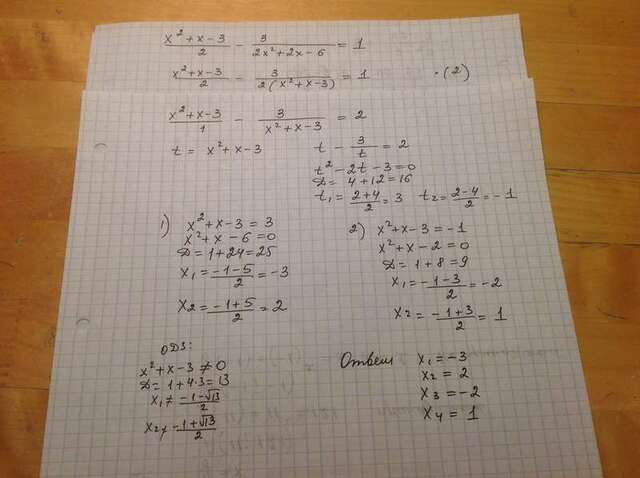 (x² + x - 3)/2 - 3/(2x² + 2x - 6) = 1
(x² + x - 3)/2 - 3/(2(x² + x - 3)) = 1 ·(2)
(x² + x - 3)/1 - 3/(x² + x - 3) = 2
t = x² + x - 3
t - 3/t = 2
t² - 2t - 3 = 0
D = 4 + 12 = 16
t₁ = (2+4)/2 = 3 t₂ = (2-4)/2 = -1
1) x² + x - 3 = 3
x² + x - 6 = 0
D = 1 + 24 = 25
x₁ = (-1-5)/2 = -3
x₂ = (-1+5)/2 = 2
2) x² + x - 3 = -1
x² + x - 2 = 0
D = 1 + 8 = 9
x₁ = (-1-3)/2 = -2
x₂ = (-1+3)/2 = 1
ОДЗ:
x² + x - 3 ≠ 0
D = 1 + 4·3 = 13
x₁ ≠ (-1-√13)/2
x₂ ≠ (-1+√13)/2
Ответ x₁ = -3
x₂ = 2
x₃ = -2
x₄ = 1